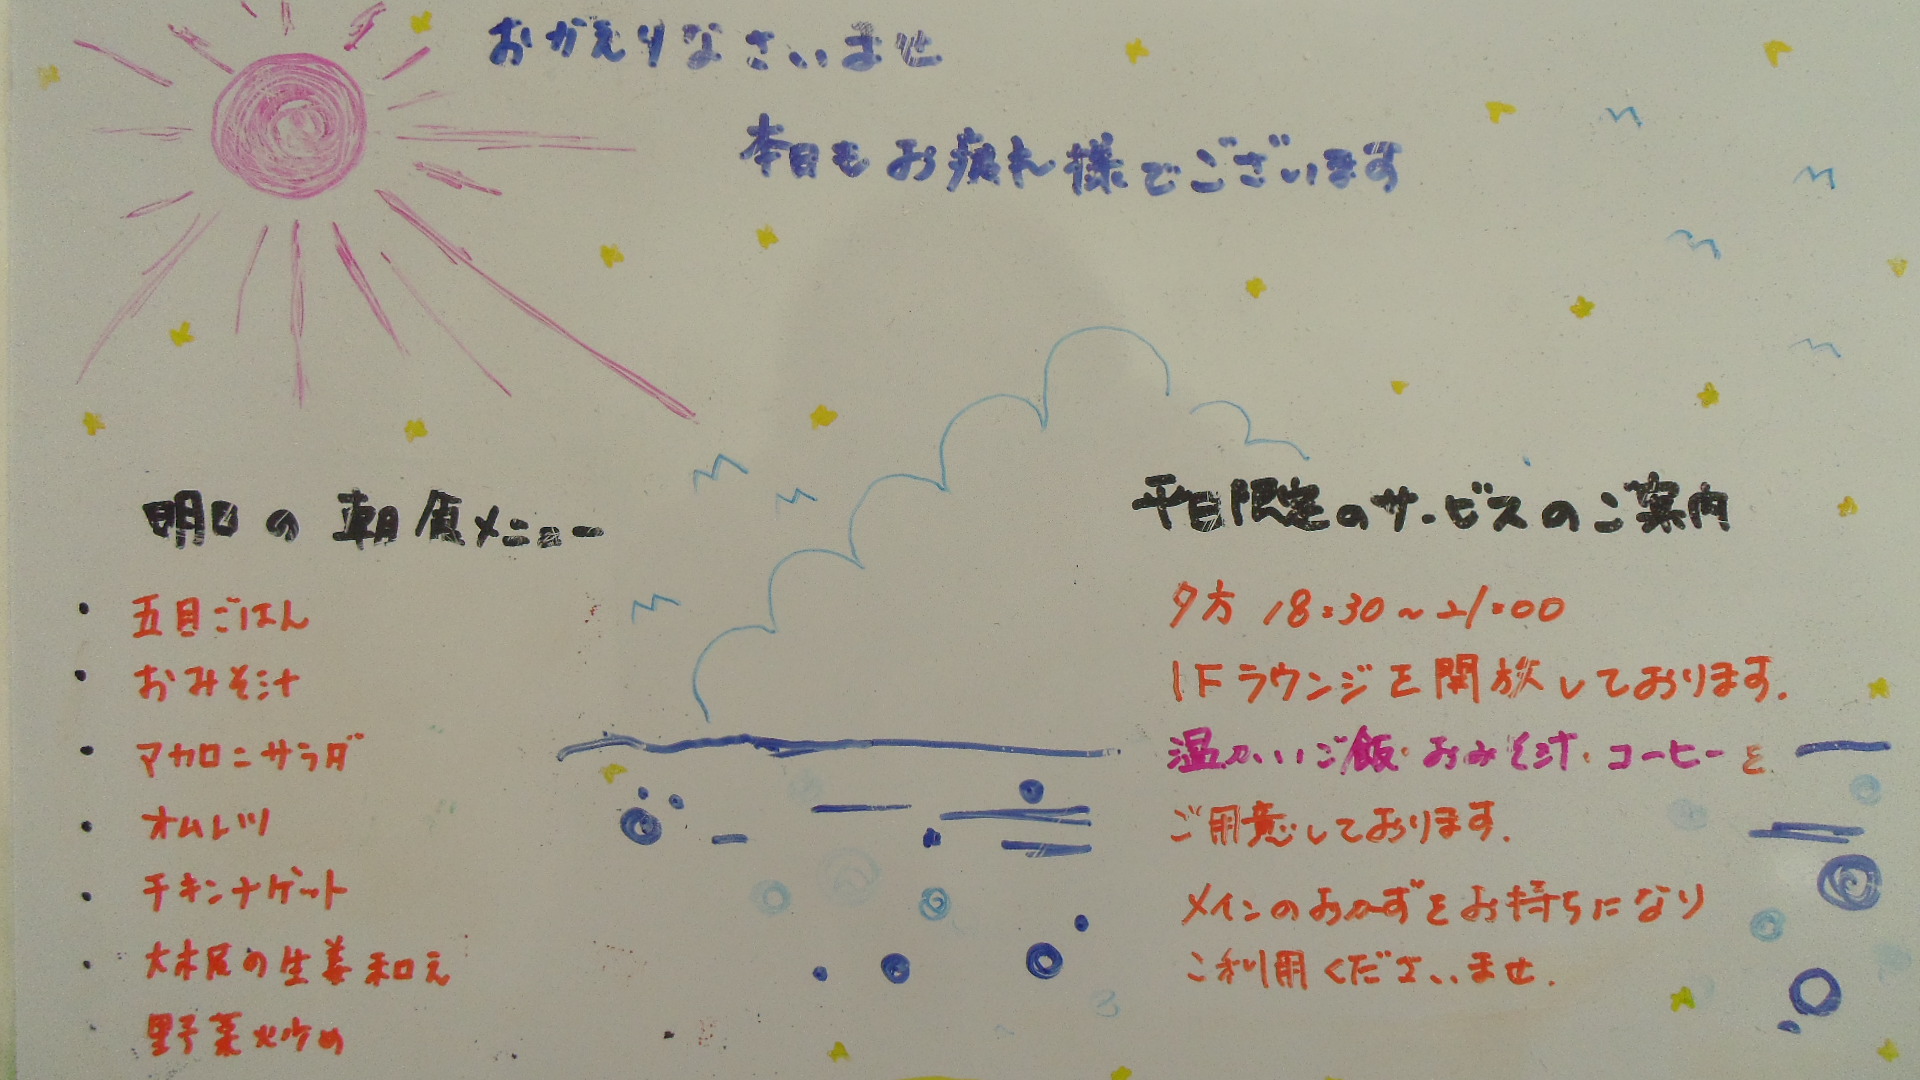 おかえりなさいませ
本日もお疲れ様でございます
明日の朝食メニュー
・五目ごはん
・おみそ汁
・マカロニサラダ
・オムレツ
・チキンナゲット
・大根の生姜和え
・野菜炒め
平日限定のサービスのご案内
夕方 18:30〜21:00
1Fラウンジを開放しております.
温かいご飯・おみそ汁・コーヒーを
ご用意しております.
メインのおかずをお持ちになり
ご利用くださいませ.